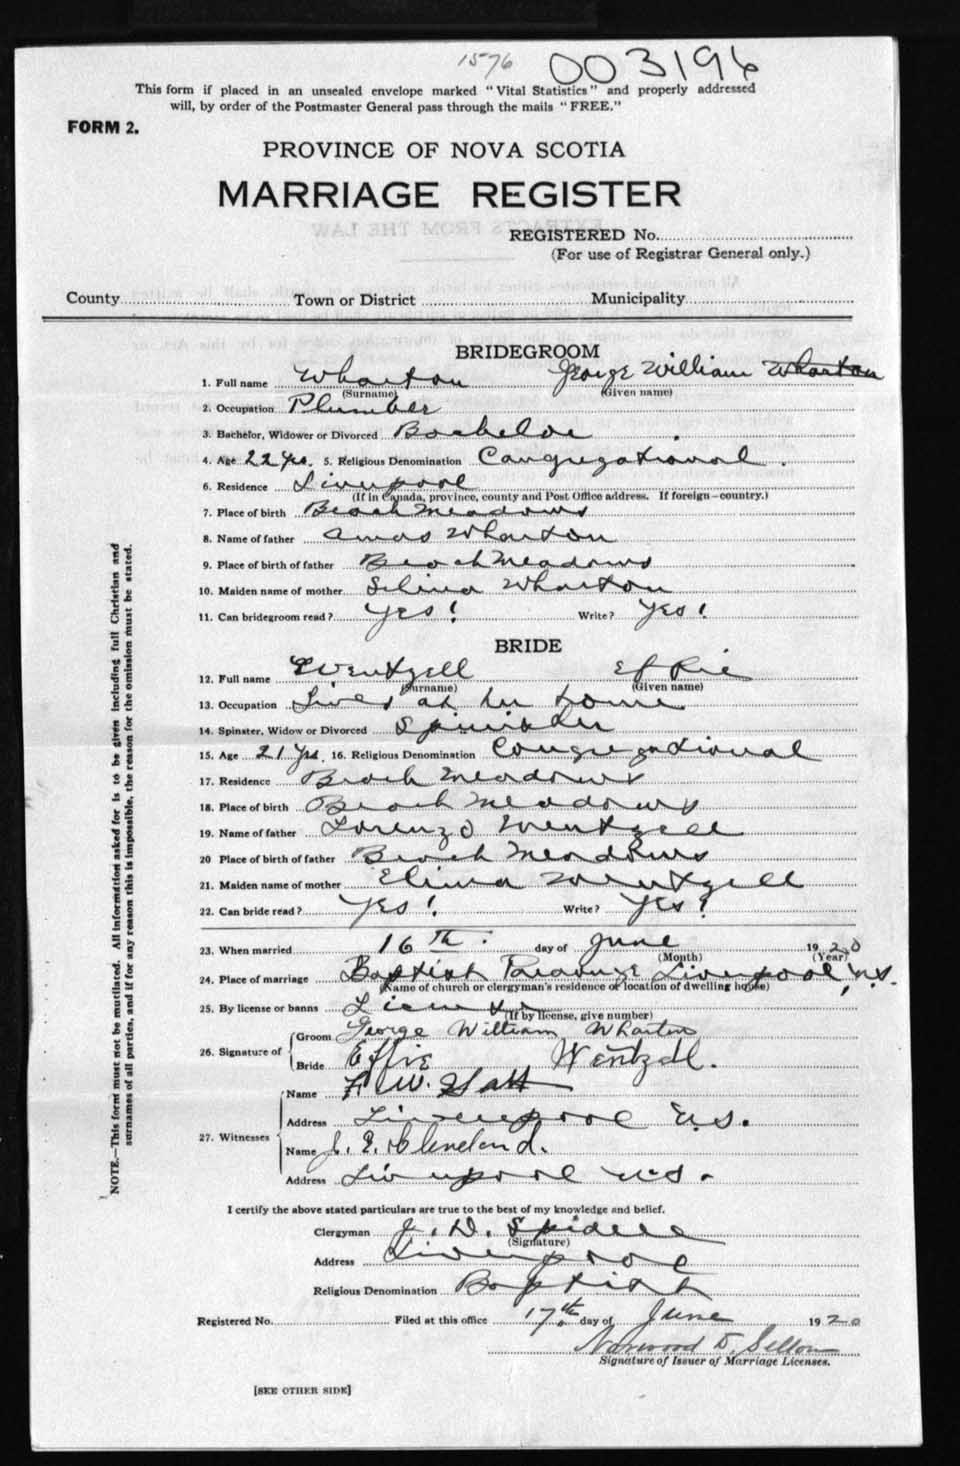 1576 003196
This form if placed in an unsealed envelope marked "Vital Statistics" and properly addressed
will, by order of the Postmaster General pass through the mails "FREE."
FORM 2.
PROVINCE OF NOVA SCOTIA
MARRIAGE REGISTER
EXTRACTS FROM THE LAW
REGISTERED No.
(For use of Registrar General only.)
County Town or District Municipality
BRIDEGROOM
1. Full name Wharton George William Wharton
(Surname) (Given name)
2. Occupation Plumber
3. Bachelor, Widower or Divorced Bachelor
4. Age 22 yrs. 5. Religious Denomination Congregational.
6. Residence Liverpool
(If in Canada, province, county and Post Office address. If foreign—country.)
7. Place of birth Beach Meadows
8. Name of father Amos Wharton
9. Place of birth of father Beach Meadows
10. Maiden name of mother Selina Wharton
11. Can bridegroom read? Yes! Write? Yes!
BRIDE
12. Full name Wentzell Effie
(Surname) (Given name)
13. Occupation Lives at her home
14. Spinster, Widow or Divorced Spinster
15. Age 21 yrs. 16. Religious Denomination Congregational
17. Residence Beach Meadows
18. Place of birth Beach Meadows
19. Name of father Lorenzo Wentzell
20 Place of birth of father Beach Meadows
21. Maiden name of mother Elima Wentzell
22. Can bride read? Yes! Write? Yes?
23. When married 16th. day of June 1920
(Month) (Year)
24. Place of marriage Baptist Parsonage Liverpool, N.S.
(Name of church or clergyman's residence or location of dwelling house)
25. By license or banns License
(If by license, give number)
26. Signature of Groom George William Wharton
Bride Effie Wentzell.
27. Witnesses Name F. W.
Address Liverpool N.S.
Name J. E. Cleveland.
Address Liverpool N.S.
I certify the above stated particulars are true to the best of my knowledge and belief.
Clergyman J. D. Spidell
(Signature)
Address Liverpool
Religious Denomination Baptist
Registered No. Filed at this office 17th day of June 1920
Norwood D. Sellon
Signature of Issuer of Marriage Licenses.
[SEE OTHER SIDE]
NOTE.—This form must not be mutilated. All information asked for is to be given including full Christian and
surnames of all parties, and if for any reason this is impossible, the reason for the omission must be stated.